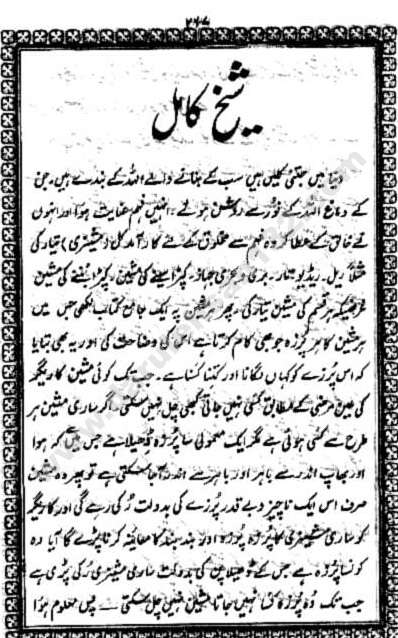 ۲۶۷
شیخِ کامل
دنیا میں جتنی کلیں ہیں سب کے بنانے والے اللہ کے بندے ہیں۔ جن
کے دماغ اللہ کے نُور سے روشن ہوئے۔ انہیں فہم عنایت ہوا اور انہوں
نے خالق کے عطا کردہ فہم سے مخلوق کے لئے کارآمد کلیں (مشینری) تیار کی
مثلاً ریل۔ ریڈیو تار۔ بری و بحری جہاز۔ کپڑا سینے کی مشین۔ کپڑا بننے کی مشین
غرضیکہ ہر قسم کی مشین تیار کی۔ پھر ہر مشین پہ ایک جامع کتاب لکھی جس میں
ہر مشین کا ہر پُرزہ جو بھی کام کرتا ہے اس کی وضاحت کی اور یہ بھی بتایا
کہ اس پُرزے کو کہاں لگانا اور کتنا کسنا ہے۔ جب تک کوئی مشین کاریگر
کی عین مرضی کے مطابق کسی نہیں جاتی کبھی چل نہیں سکتی۔ اگر ساری مشین ہر
طرح سے کسی ہوئی ہے مگر ایک معمولی سا پُرزہ ڈھیلا ہے جس میں کہ ہوا
اور بھاپ اندر سے باہر اور باہر سے اندر آ جا سکتی ہے تو پھر وہ مشین
صرف اس ایک ناچیز و بے قدر پُرزے کی بدولت رُکی رہے گی اور کاریگر
کو ساری مشینری کا پُرزہ پُرزہ اور بند بند کا معائنہ کرنا پڑے گا آیا وہ
کونسا پُرزہ ہے جس کے ڈھیلا پن کی بدولت ساری مشینری رُکی پڑی ہے
جب تک وُہ پُرزہ کسا نہیں جاتا مشین نہیں چل سکتی۔ پس معلوم ہوا